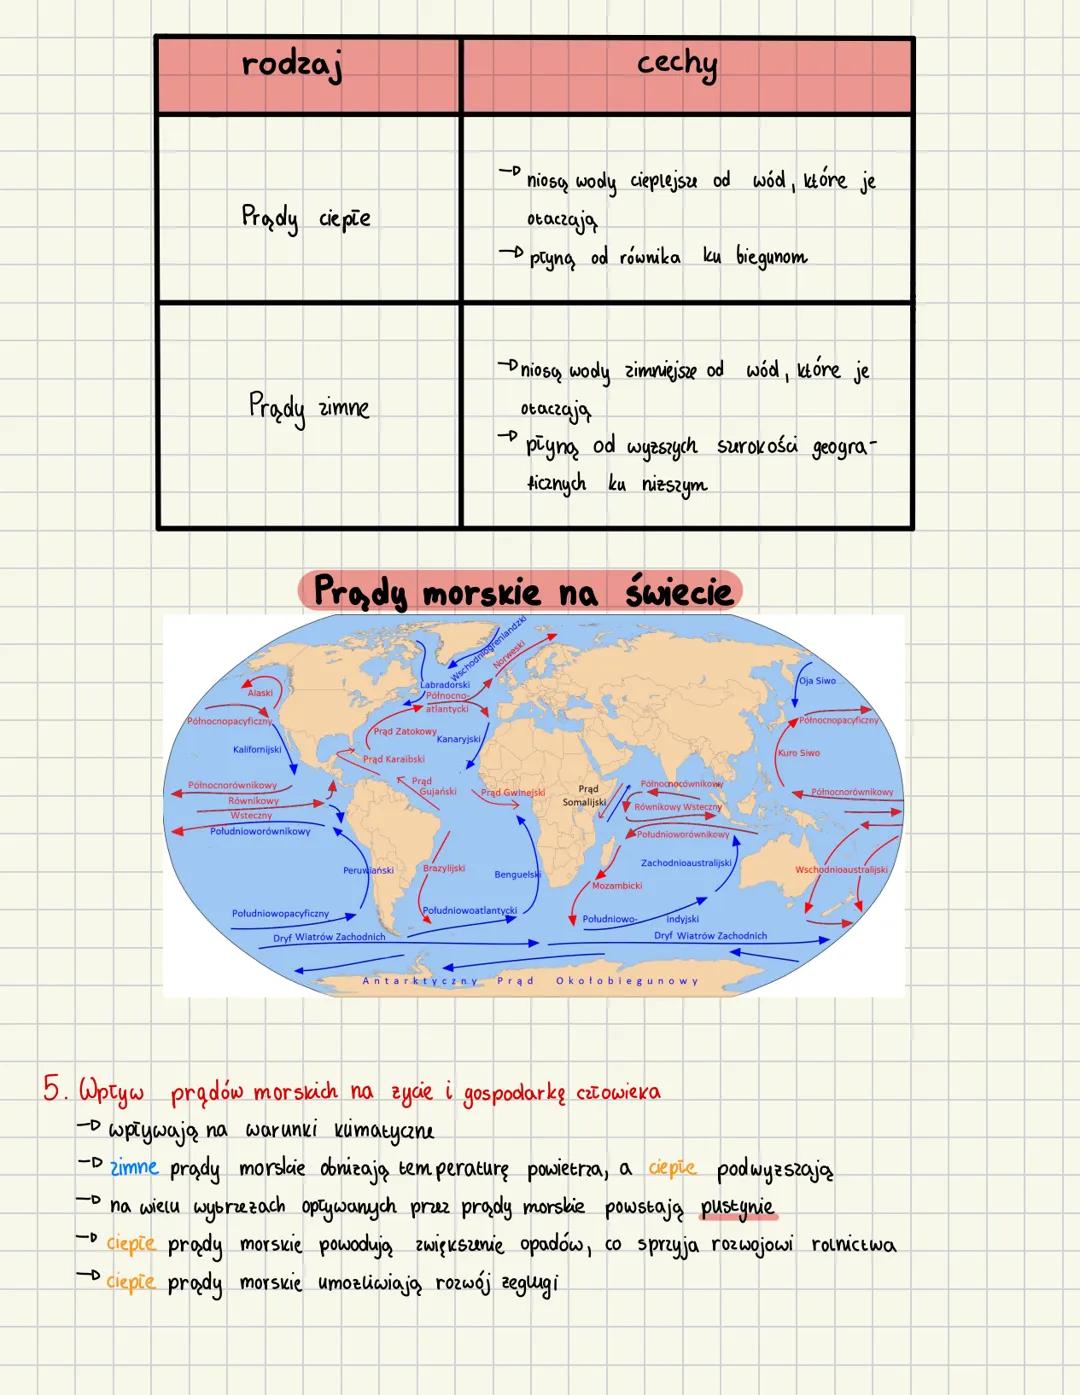 rodzaj
cechy
Prądy ciepłe
→ niosą wody cieplejsze od wód, które je
otaczają
→ płyną od równika ku biegunom
Prądy zimne
→ niosą wody zimniejsze od wód, które je
otaczają
→ płyną od wyższych szerokości geogra-
ficznych ku niższym
Prądy morskie na świecie
Wschodniogrenlandzki
Norweski
Alaski
Labradorski
Północno-
atlantycki
Oja Siwo
Północnopacyficzny
Prąd Zatokowy
Kanaryjski
Północnopacyficzny
Kalifornijski
Prąd Karaibski
Kuro Siwo
Północnorównikowy
Prąd
Gujański
Prąd Gwinejski
Prąd
Somalijski
Północnorównikowy
Północnorównikowy
Równikowy
Wsteczny
Równikowy Wsteczny
Południoworównikowy
Południoworównikowy
Peruwiański
Brazylijski
Benguelski
Zachodnioaustralijski
Wschodnioaustralijski
Mozambicki
Południowopacyficzny
Południowoatlantycki
Południowo-
indyjski
Dryf Wiatrów Zachodnich
Dryf Wiatrów Zachodnich
Antarktyczny Prąd Okołobiegunowy
5. Wpływ prądów morskich na życie i gospodarkę człowieka
→ wpływają na warunki klimatyczne
→ zimne prądy morskie obniżają temperaturę powietrza, a ciepłe podwyższają
→ na wielu wybrzeżach opływanych przez prądy morskie powstają pustynie
→ ciepłe prądy morskie powodują zwiększenie opadów, co sprzyja rozwojowi rolnictwa
→ ciepłe prądy morskie umożliwiają rozwój żeglugi